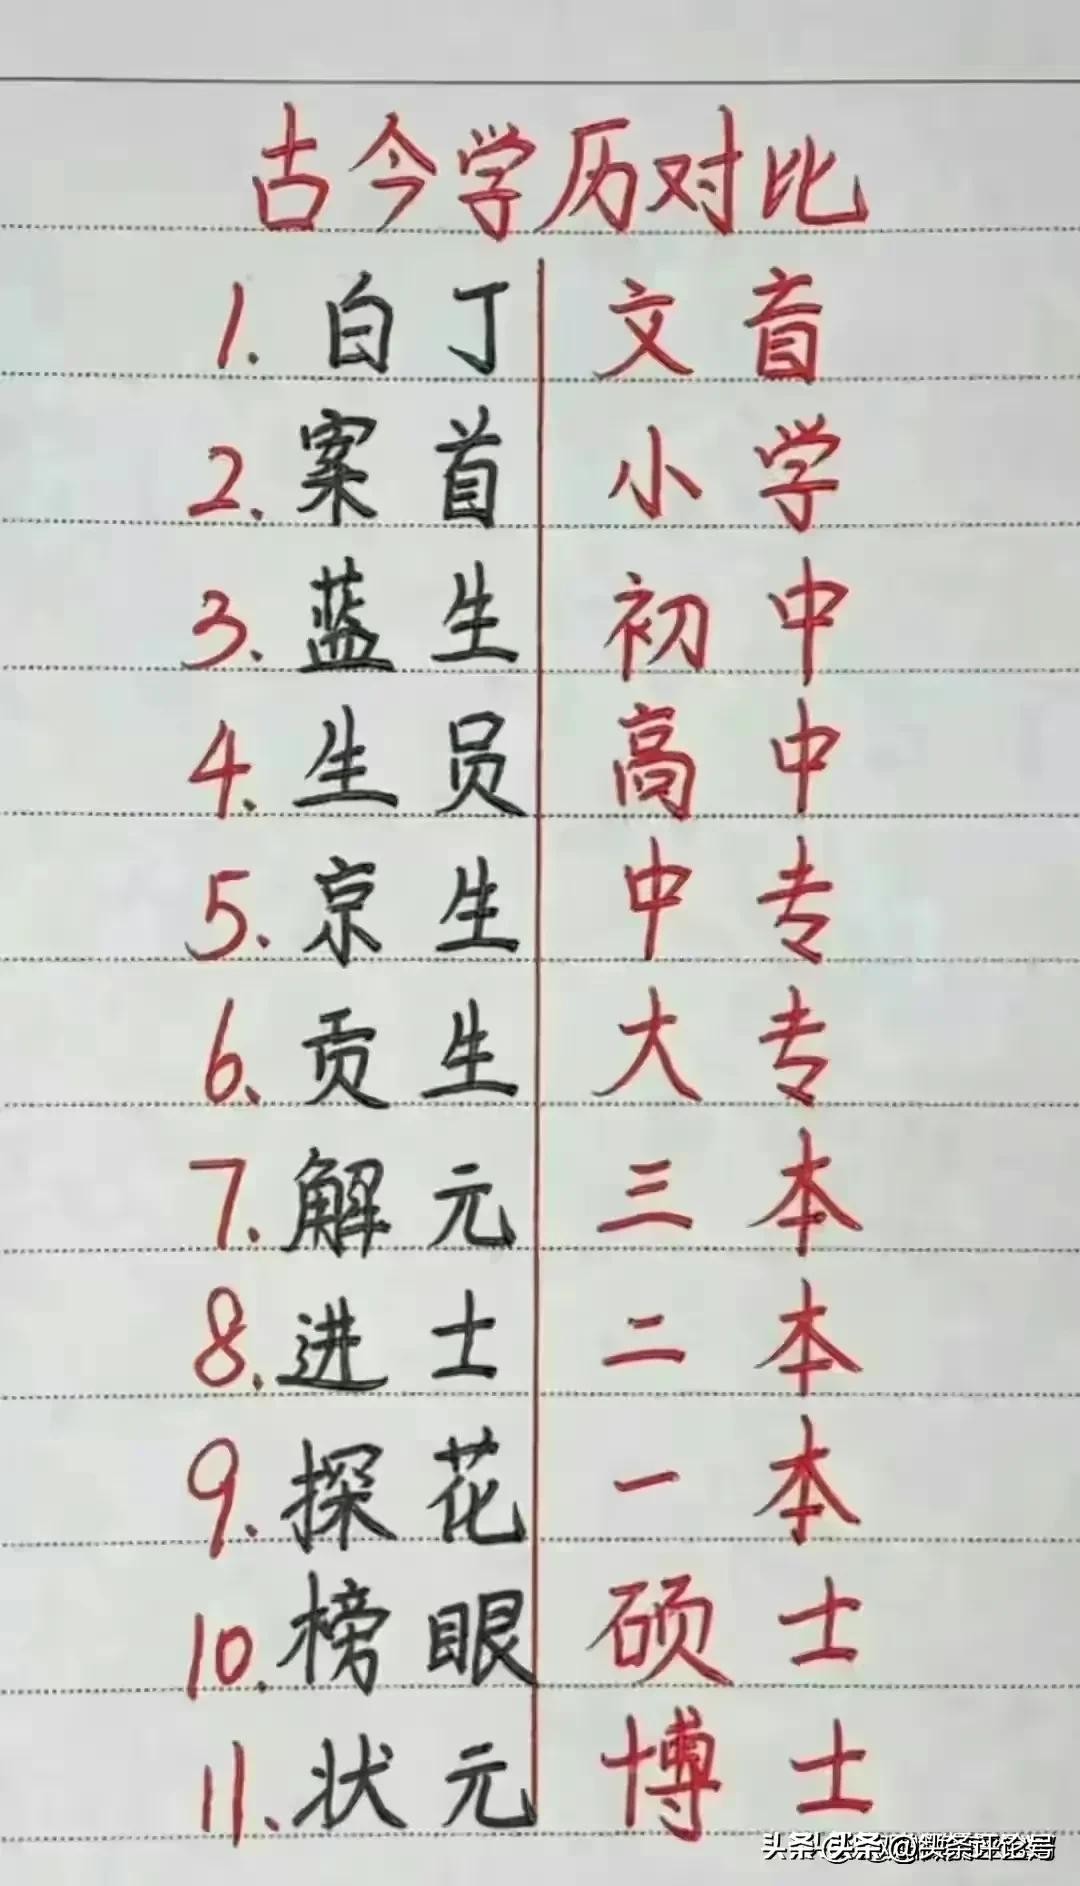 古今学历对比
1. 白丁 文盲
2. 案首 小学
3. 蓝生 初中
4. 生员 高中
5. 京生 中专
6. 贡生 大专
7. 解元 三本
8. 进士 二本
9. 探花 一本
10. 榜眼 硕士
11. 状元 博士
头条 @头条评论号